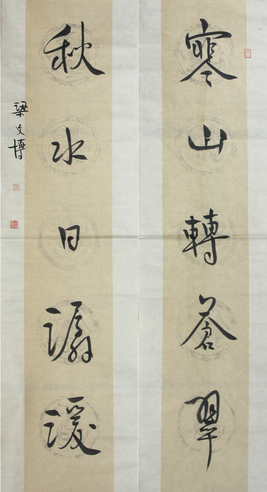 寒山轉蒼翠
秋水日潺湲
梁文博